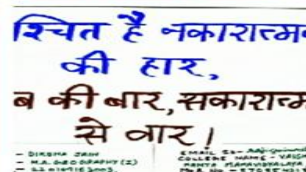 श्चित है नकारात्म
की हार,
ब की बार, सकारात्म
से वार।
- DIKSHA JAIN
- M.A. GEOGRAPHY (I)
COLLEGE NAME - VAISH